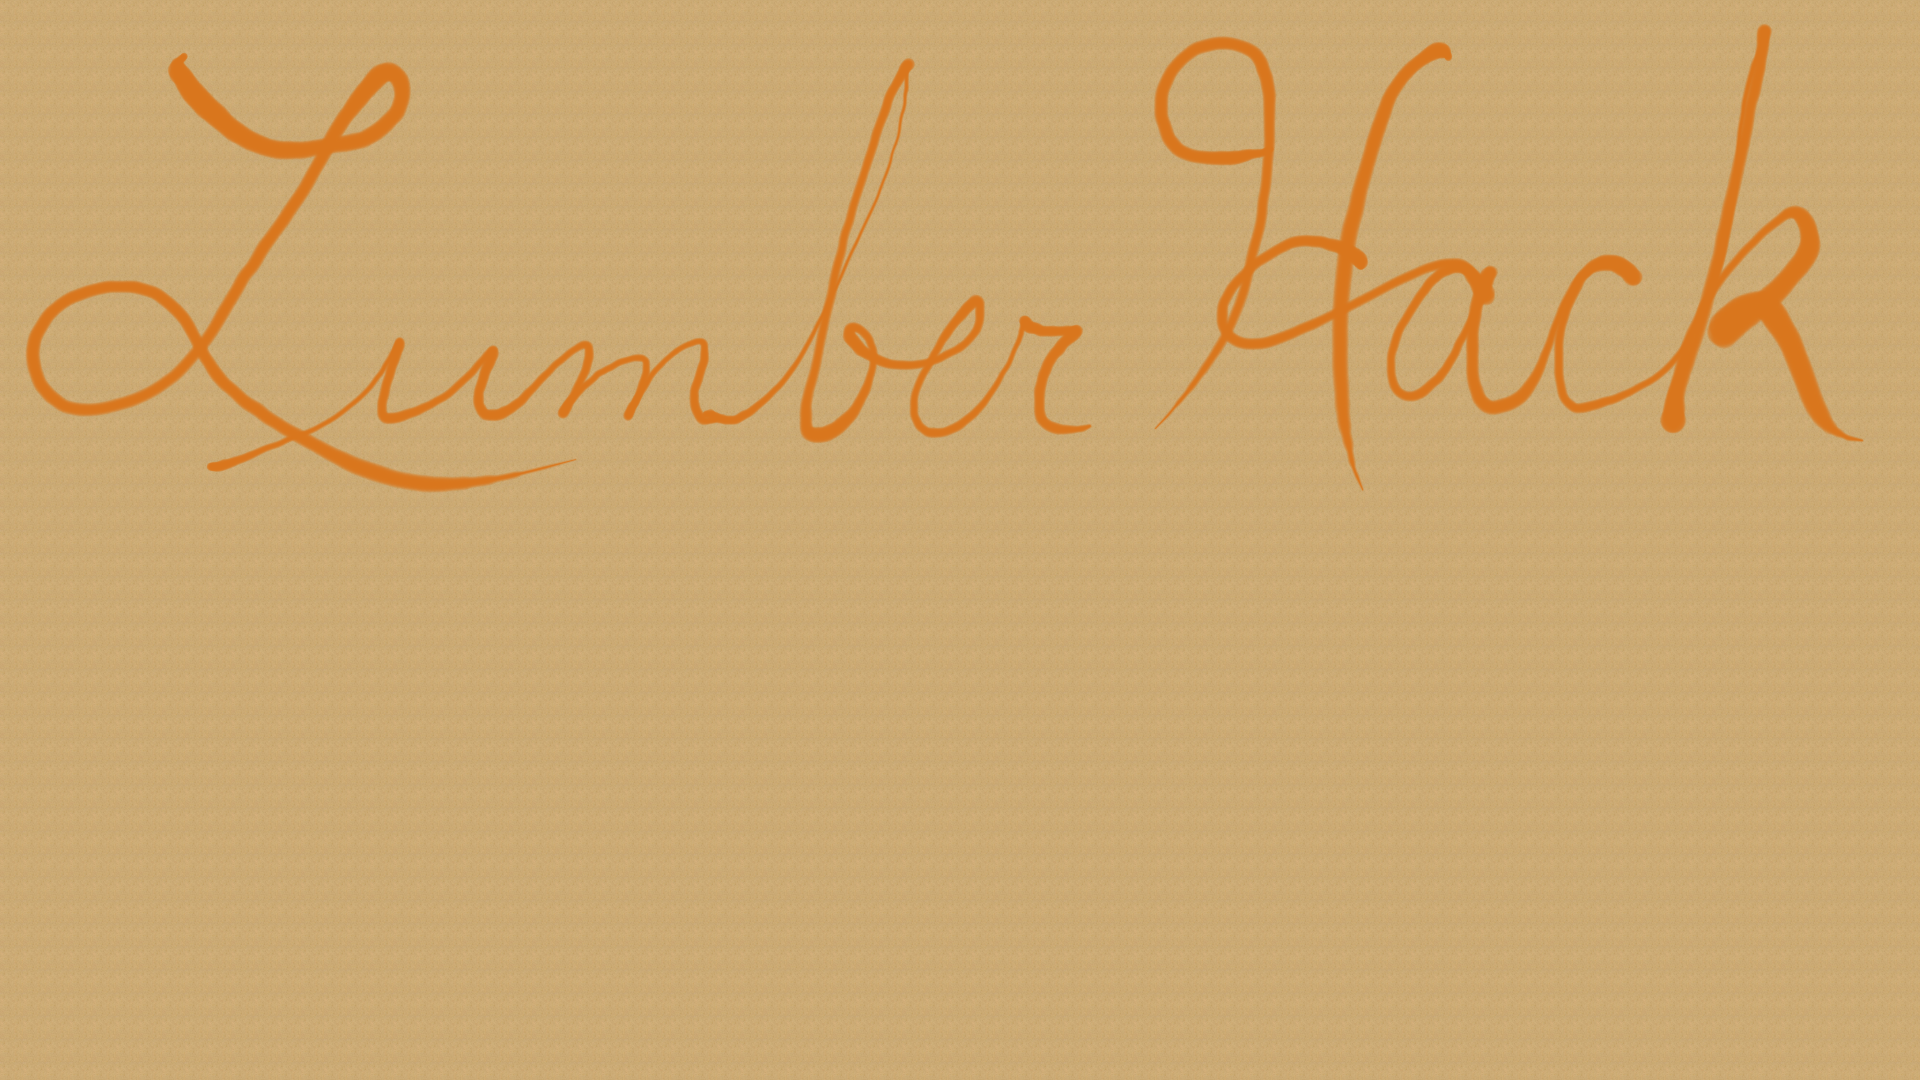 Lumber Hack